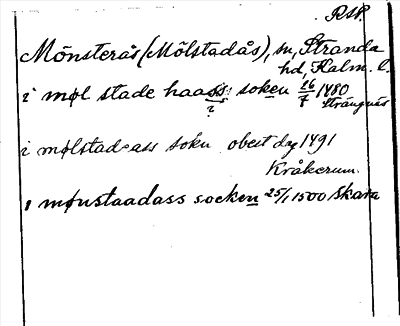 RAP.
Mönsterås (Mölstadås), sn, Stranda
hd, Kalm. l.
i møl stade haass soken 16/7 1480
? Strängnäs
i mølstad-ass sokn obest dag 1491
Kråkerum.
i mønstaadass socken 25/1 1500 Skara